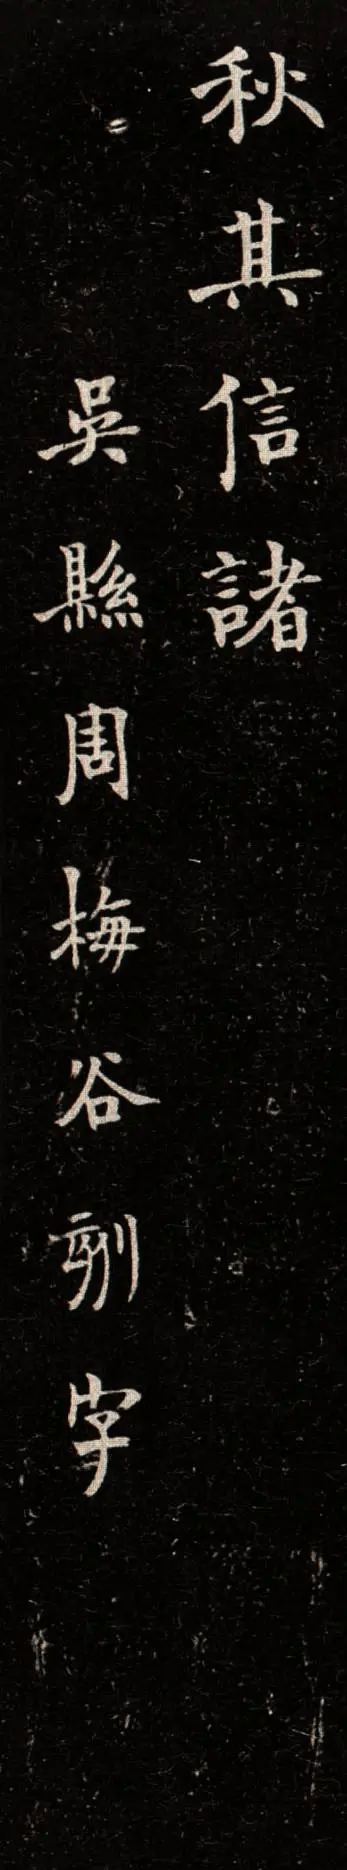 秋其信諸
吳縣周梅谷刻字